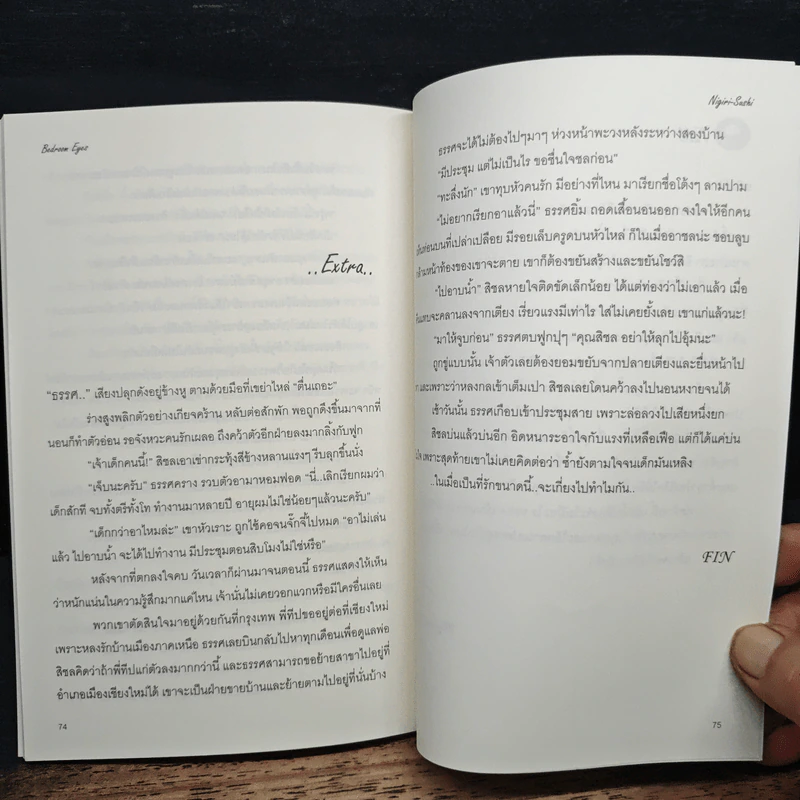 Bedroom Eyes
..Extra..
“ธรรศ..” เสียงปลุกดังอยู่ข้างหู ตามด้วยมือที่เขย่าไหล่ “ตื่นเถอะ”
ร่างสูงพลิกตัวอย่างเกียจคร้าน หลับต่อสักพัก พอถูกดึงขึ้นมาจากที่
นอนก็ทำตัวอ่อน รอจังหวะคนรักเผลอ ถึงคว้าตัวอีกฝ่ายลงมากลิ้งกับฟูก
“เจ้าเด็กคนนี้!” สิชลเอาเข่ากระทุ้งสีข้างหลานแรงๆ รีบลุกขึ้นนั่ง
“เจ็บนะครับ” ธรรศคราง รวบตัวอามาหอมฟอด “นี่..เลิกเรียกผมว่า
เด็กสักที จบทั้งตรีทั้งโท ทำงานมาหลายปี อายุผมไม่ใช่น้อยๆแล้วนะครับ”
“เด็กกว่าอาไหมล่ะ” เขาหัวเราะ ถูกไซ้คอจนจั๊กจี้ไปหมด “อาไม่เล่น
แล้ว ไปอาบน้ำ จะได้ไปทำงาน มีประชุมตอนสิบโมงไม่ใช่หรือ”
หลังจากที่ตกลงใจคบ วันเวลาก็ผ่านมาจนตอนนี้ ธรรศแสดงให้เห็น
ว่าหนักแน่นในความรู้สึกมากแค่ไหน เจ้านั่นไม่เคยวอกแวกหรือมีใครอื่นเลย
พวกเขาตัดสินใจมาอยู่ด้วยกันที่กรุงเทพ พี่ทีปขออยู่ต่อที่เชียงใหม่
เพราะหลงรักบ้านเมืองภาคเหนือ ธรรศเลยบินกลับไปหาทุกเดือนเพื่อดูแลพ่อ
สิชลคิดว่าถ้าพี่ทีปแก่ตัวลงมากกว่านี้ และธรรศสามารถขอย้ายสาขาไปอยู่ที่
อำเภอเมืองเชียงใหม่ได้ เขาจะเป็นฝ่ายขายบ้านและย้ายตามไปอยู่ที่นั่นบ้าง
74
Nigiri-Sushi
ธรรศจะได้ไม่ต้องไปๆมาๆ ห่วงหน้าพะวงหลังระหว่างสองบ้าน
“มีประชุม แต่ไม่เป็นไร ขอชื่นใจชลก่อน”
“ทะลึ่งนัก” เขาทุบหัวคนรัก มีอย่างที่ไหน มาเรียกชื่อโต้งๆ ลามปาม
“ไม่อยากเรียกอาแล้วนี่” ธรรศยิ้ม ถอดเสื้อนอนออก จงใจให้อีกคน
ท่อนบนที่เปล่าเปลือย มีรอยเล็บครูดบนหัวไหล่ ก็ในเมื่ออาชลน่ะ ชอบลูบ
หน้าท้องของเขาจะตาย เขาก็ต้องขยันสร้างและขยันโชว์สิ
“ไปอาบน้ำ” สิชลหายใจติดขัดเล็กน้อย ได้แต่ท่องว่าไม่เอาแล้ว เมื่อ
แทบจะคลานลงจากเตียง เรี่ยวแรงมีเท่าไร ใส่ไม่เคยยั้งเลย เขาแก่แล้วนะ!
“มาให้จูบก่อน” ธรรศตบฟูกปุๆ “คุณสิชล อย่าให้ลุกไปอุ้มนะ”
ถูกขู่แบบนั้น เจ้าตัวเลยต้องยอมขยับจากปลายเตียงและยื่นหน้าไป
และเพราะว่าหลงกลเข้าเต็มเปา สิชลเลยโดนคว้าลงไปนอนหงายจนได้
เช้าวันนั้น ธรรศเกือบเข้าประชุมสาย เพราะล่อลวงไปเสียหนึ่งยก
สิชลบ่นแล้วบ่นอีก อิดหนาระอาใจกับแรงที่เหลือเฟือ แต่ก็ได้แค่บ่น
เพราะสุดท้ายเขาไม่เคยคิดต่อว่า ซ้ำยังตามใจจนเด็กมันเหลิง
..ในเมื่อเป็นที่รักขนาดนี้..จะเกี่ยงไปทำไมกัน..
FIN
75